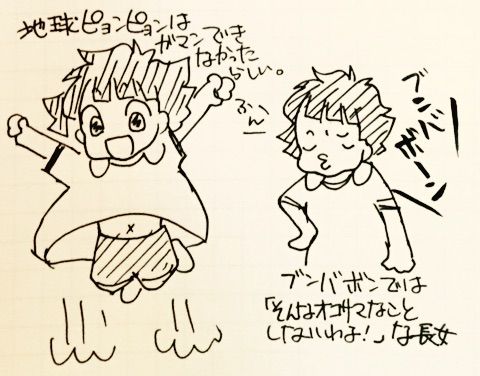 地球ピョンピョンは
ガマンでき
なかった
らしい。
ふん
ブンバ
ボーン
ブンバボンでは
「そんなオコサマなこと
しないわよ!」な長女